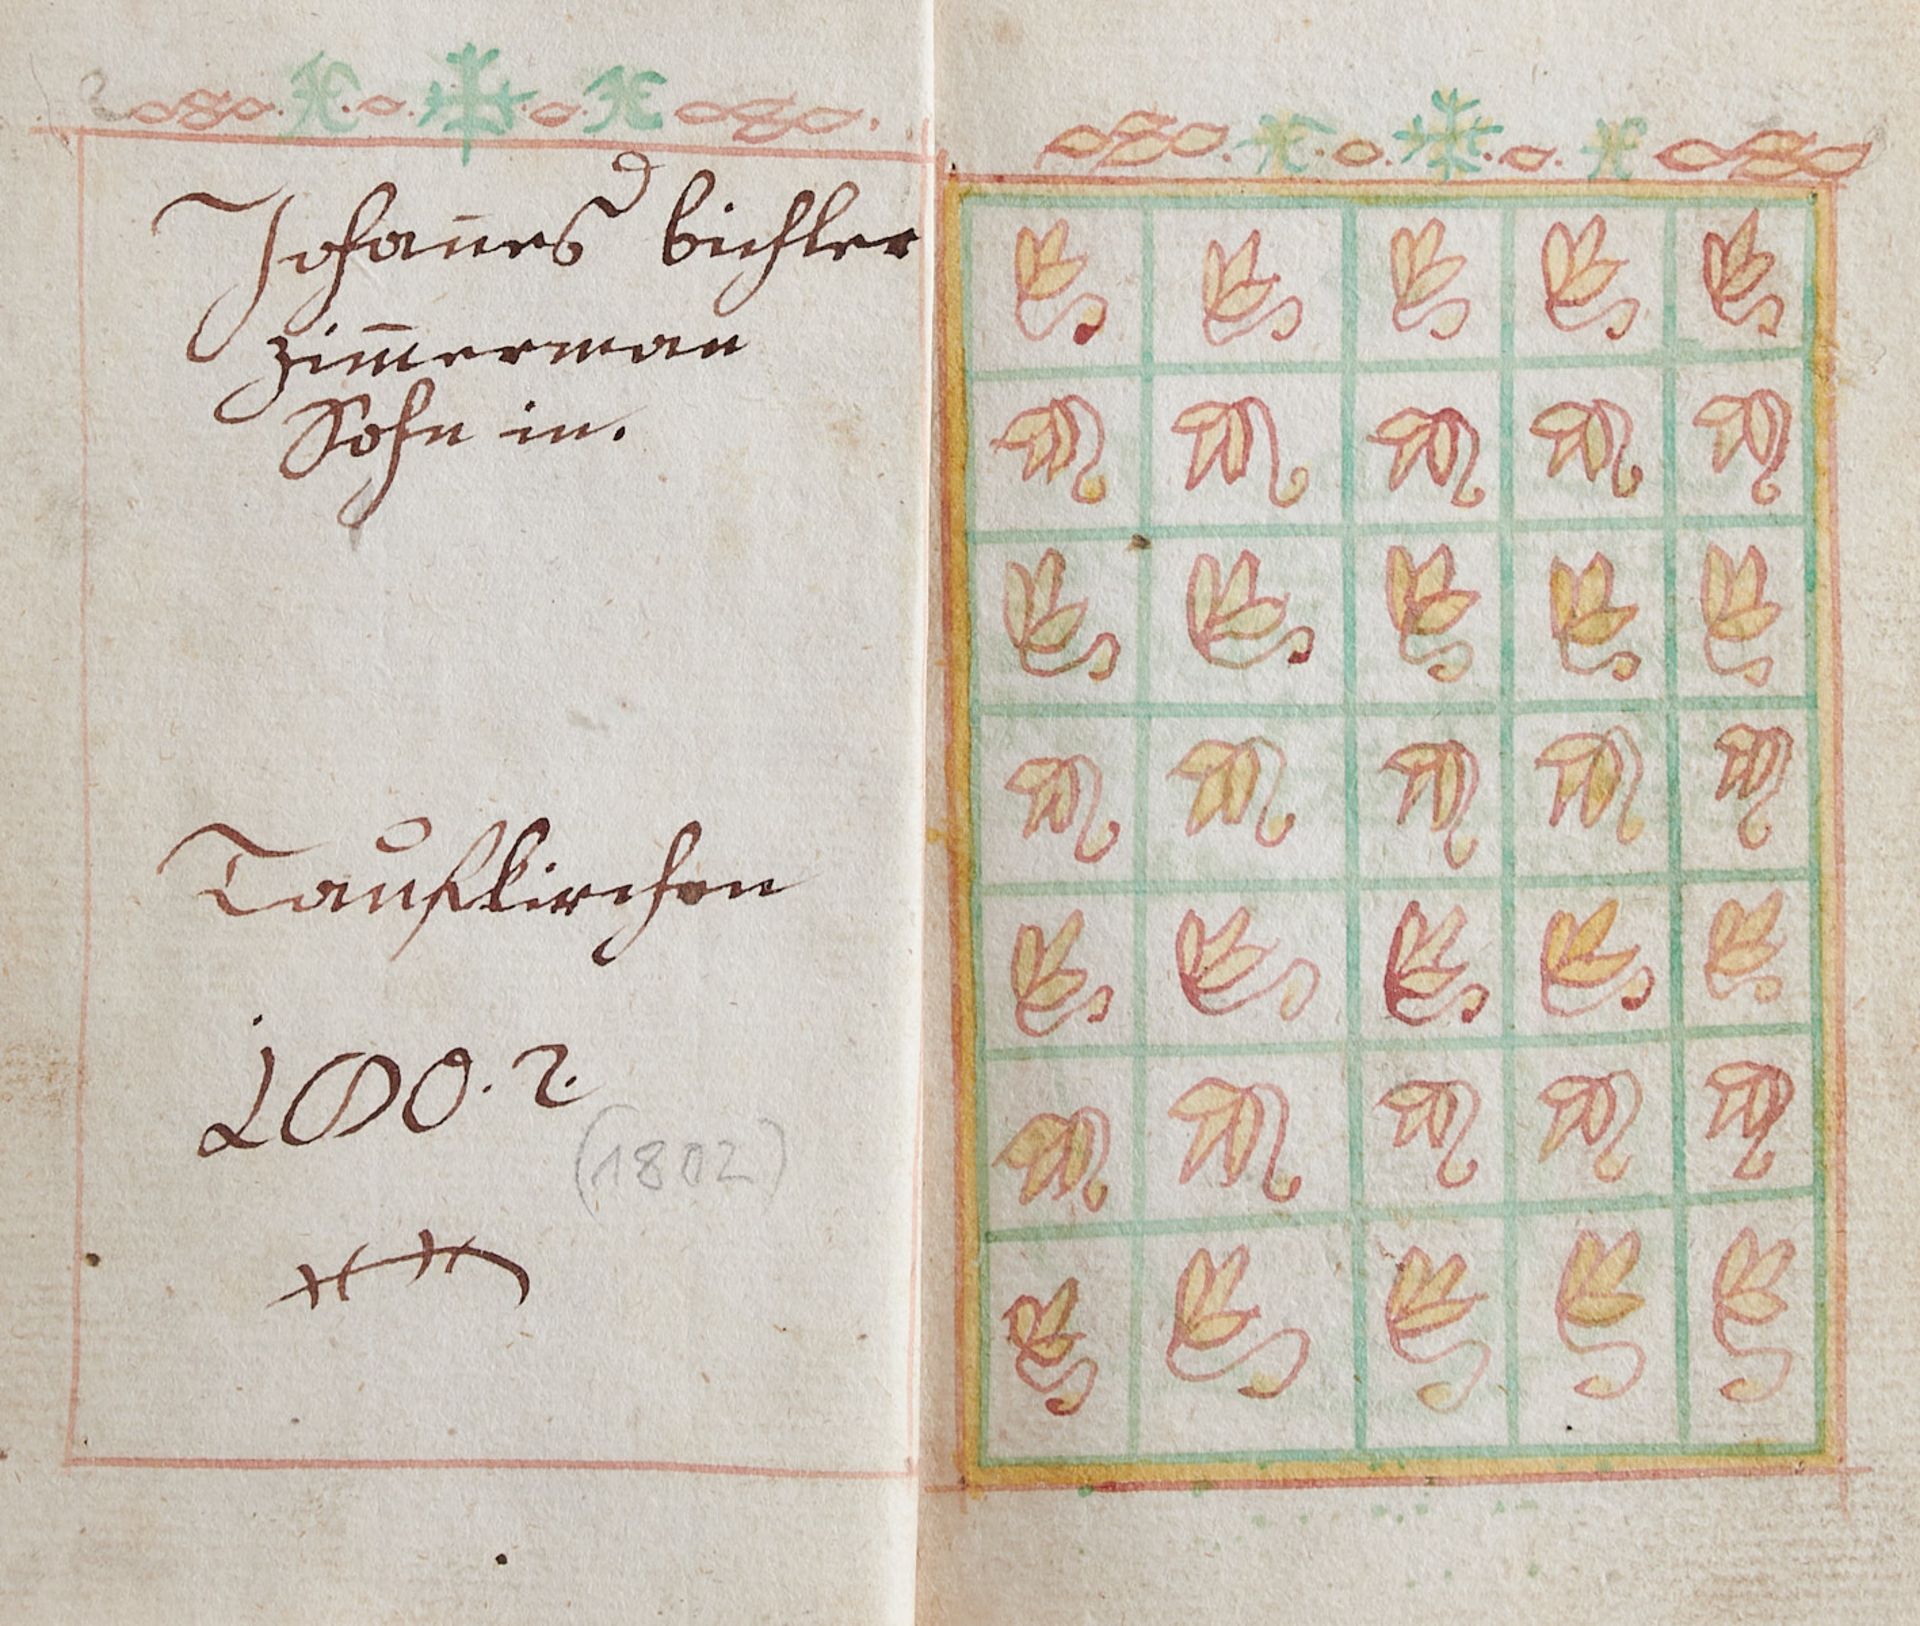 Johan̄es bichler
zim̄erman
Sohn in.
Taufkirchen
1800.2.
(1802)